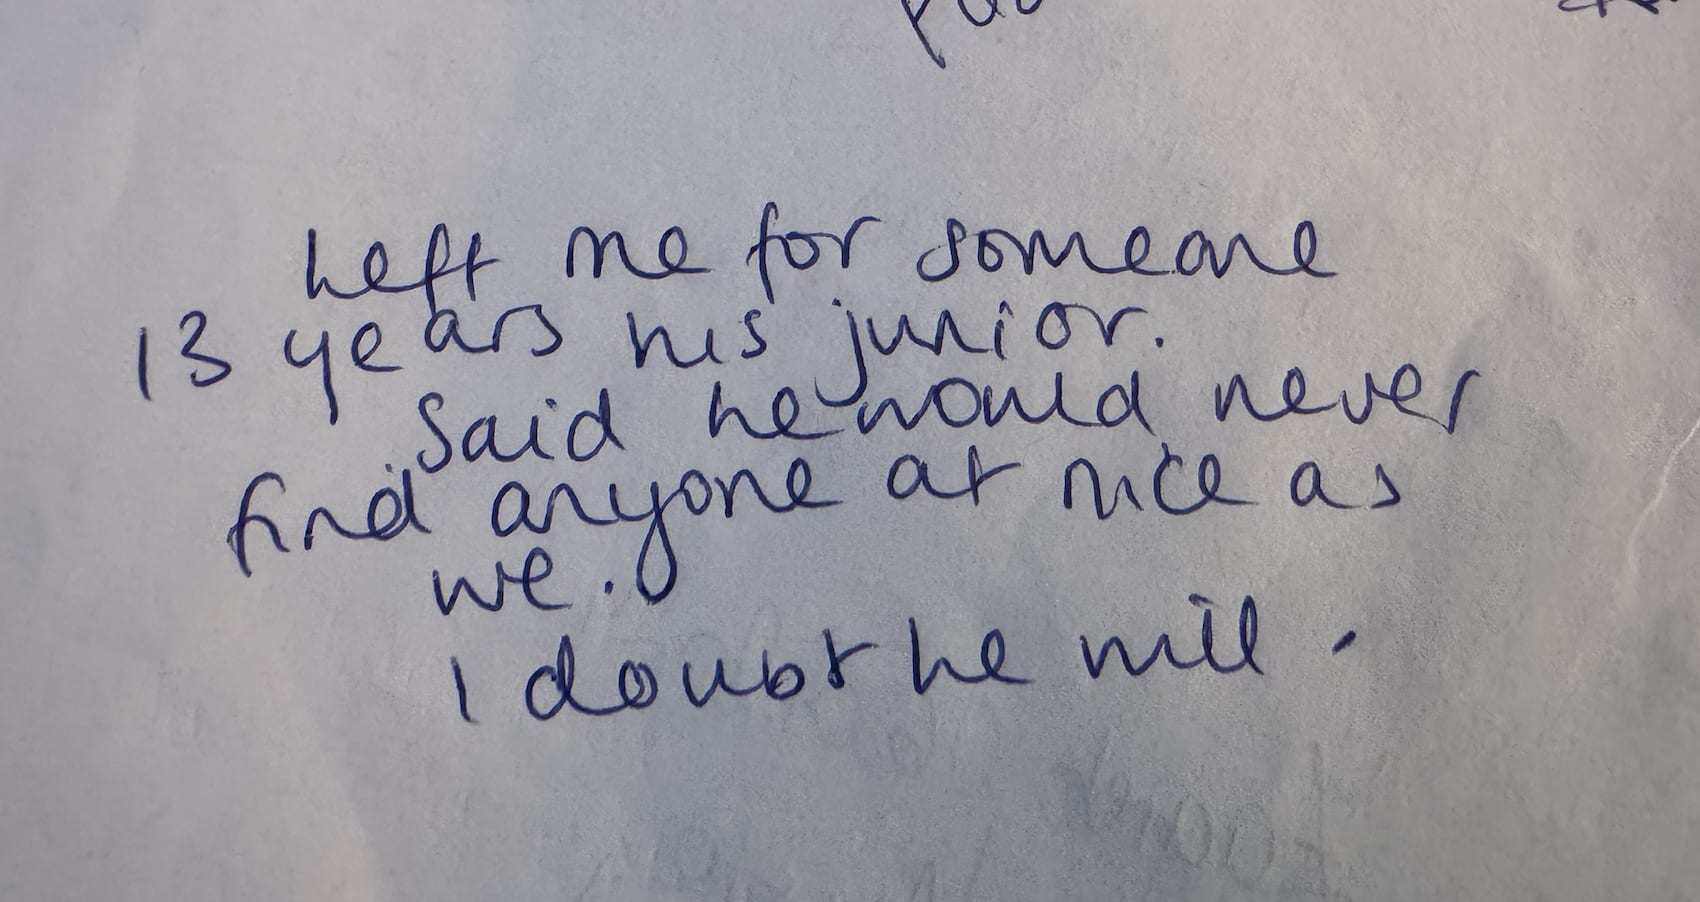 Left me for someone
13 years his junior.
Said he would never
find anyone at nice as
we.
I doubt he will.